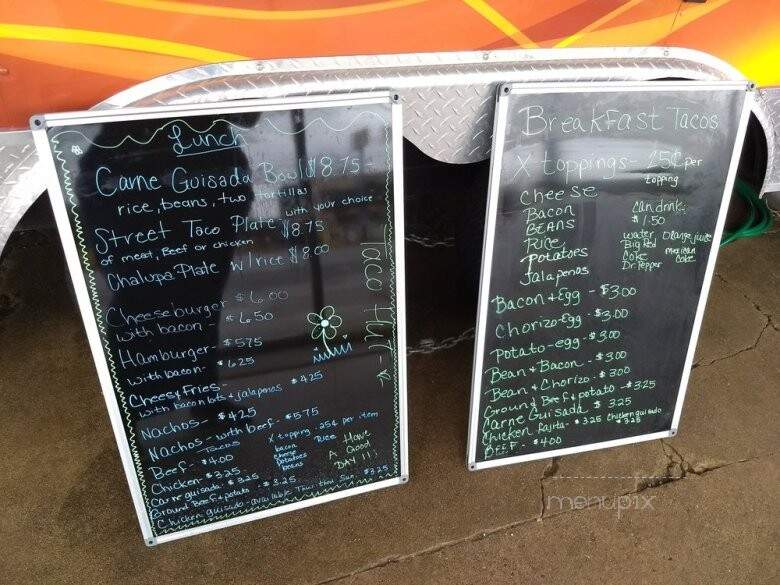 Lunch
Carne Guisada Bowl $8.75
rice, beans, two tortillas
Street Taco Plate with your choice
of meat, Beef or chicken $8.75
Chalupa Plate w/rice $8.00
Cheeseburger $6.00
with bacon - $6.50
Hamburger - $575
with bacon - $625
Cheesy Fries -
with bacon bits + jalapenos $425
Nachos - $425
Nachos - with beef - $575
Tacos
Beef - $4.00
Chicken - $325
Carne guisada - $325
Ground Beef + potato - $3.25
Chicken guisado - available Tues thru Sun - $325
X topping .25¢ per item
bacon Rice
cheese
potatoes
beans
A Have
Good
DAY!!!
Taco Hut
Breakfast Tacos
X toppings - 25¢ per
topping
Cheese
Bacon
BEANS
Rice
Potatoes
Jalapenos
Can drink
$1.50
water, Orange juice
Big Red mexican
Coke Coke
Dr Pepper
Bacon + Egg - $3.00
Chorizo - Egg - $3.00
Potato - egg - $3.00
Bean + Bacon - $3.00
Bean + Chorizo - $300
Ground Beef + potato - $325
Carne Guisada $325
Chicken fajita - $325 Chicken guisado
$325
BEEF - $400
menupix